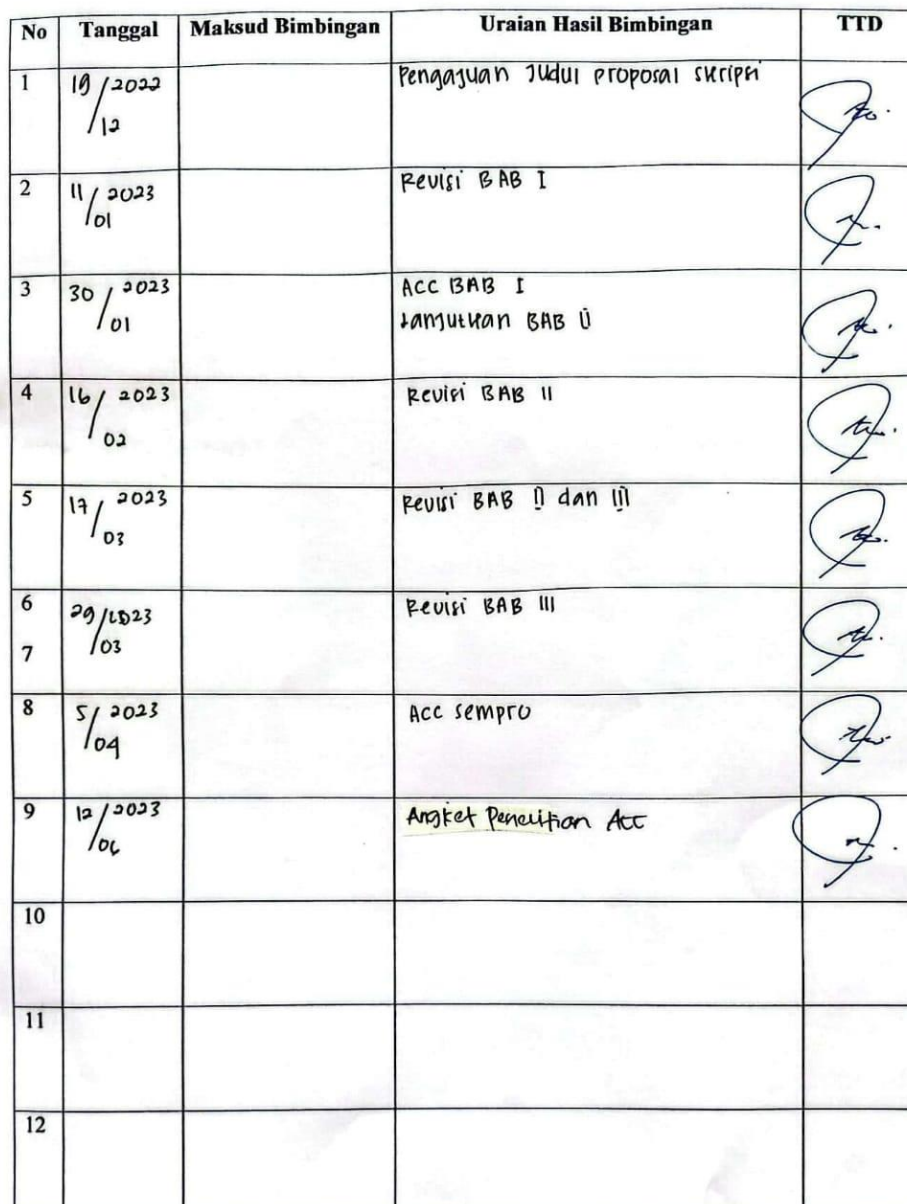 No Tanggal Maksud Bimbingan Uraian Hasil Bimbingan TTD
1 19/2022 Pengajuan Judul proposal skripsi
/12
2 11/2023 Revisi BAB I
/01
3 30/2023 ACC BAB I
/01 Lanjutkan BAB II
4 16/2023 Revisi BAB II
/02
5 17/2023 Revisi BAB II dan III
/03
6 29/2023 Revisi BAB III
7 /03
8 5/2023 ACC sempro
/04
9 12/2023 Angket Penelitian Acc
/06
10
11
12